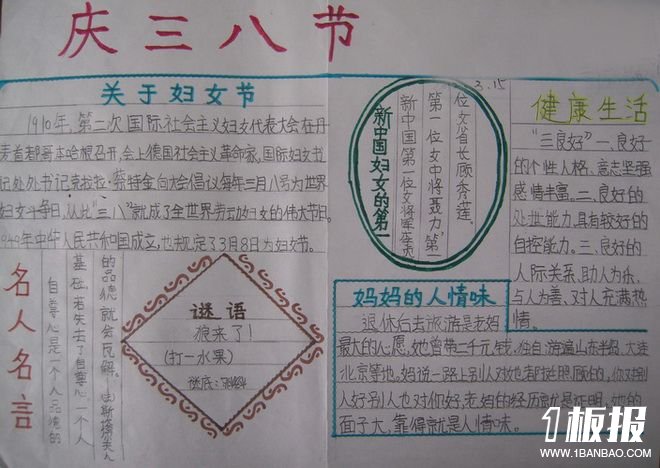 庆三八节
关于妇女节
1910年,第二次国际社会主义妇女代表大会在丹
麦首都哥本哈根召开,会上德国社会主义革命家,国际妇女书
记处处书记克拉拉·蔡特金向大会倡议每年三月八号为世界
妇女斗争日,从此"三八"就成了全世界劳动妇女的伟大节日。
1949年中华人民共和国成立,也规定了3月8日为妇女节。
名人名言
自尊心是一个人品德的
基础,若失去了自尊心,一个人
的品德就会瓦解。
谜语
狼来了!
(打一水果)
谜底:
3.15
新中国妇女的第一
新中国第一位女将军李贞
第一位女中将聂力"第一
位女省长顾秀莲。
健康生活
"三良好"一、良好
的个性人格、意志坚强
感情丰富。二、良好的
处世能力,具有较好的
自控能力。三、良好的
人际关系,助人为乐,
与人为善、对人充满热
情。
妈妈的人情味
退休后去旅游是老妈
最大的心愿,她曾带二千元钱,独自游遍山东半岛、大连
北京等地。妈说一路上别人对她都挺照顾的,你对别
人好别人也对你好,老妈的经历就是证明,她的
面子大,靠得就是人情味。
1板报
WWW.1BANBAO.COM